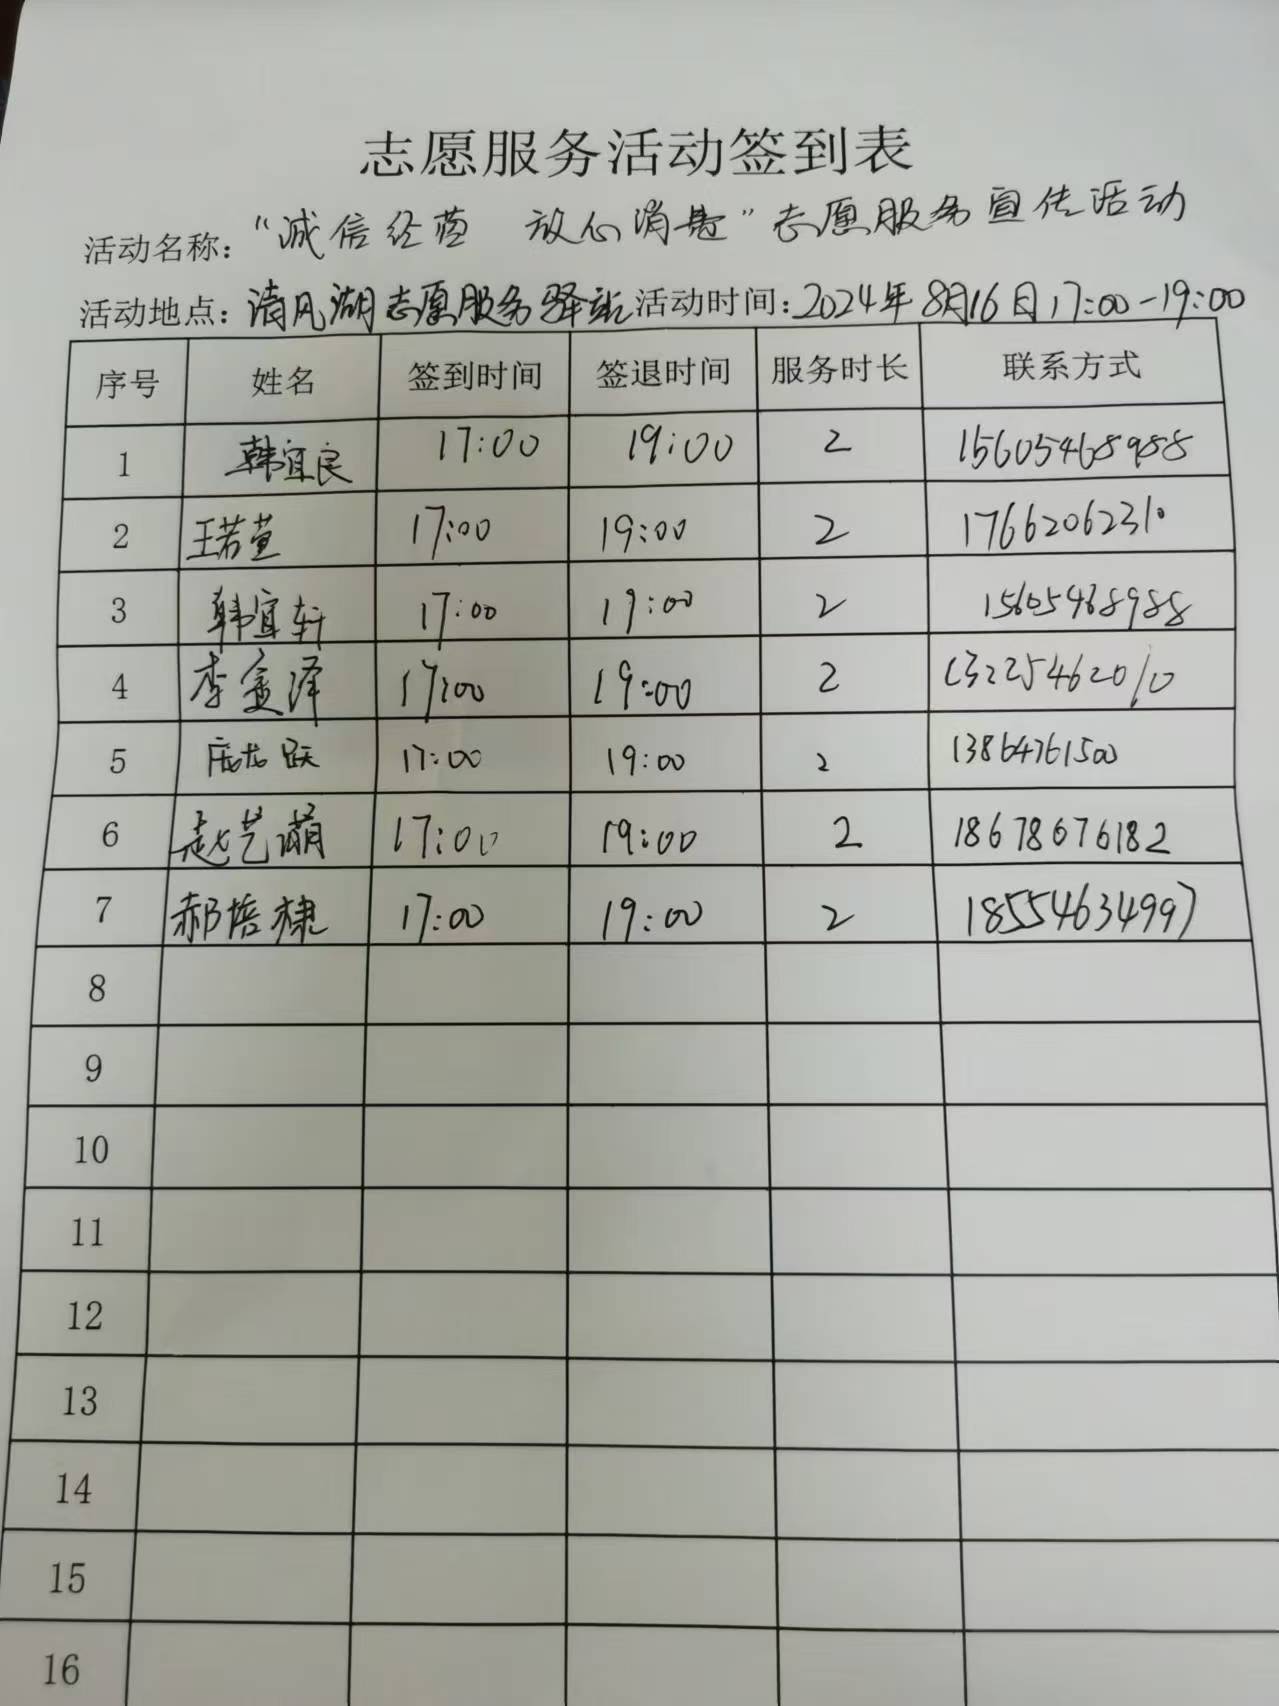 志愿服务活动签到表
活动名称：“诚信经营 放心消费”志愿服务宣传活动
活动地点：清风湖志愿服务驿站 活动时间：2024年8月16日17:00-19:00
序号 姓名 签到时间 签退时间 服务时长 联系方式
1 韩宜良 17:00 19:00 2 15605468988
2 王若萱 17:00 19:00 2 17662062310
3 韩宜轩 17:00 19:00 2 15605468988
4 李 泽 17:00 19:00 2 13225462010
5 跃 17:00 19:00 2 13864761500
6 赵艺萌 17:00 19:00 2 18678676182
7 郝培棣 17:00 19:00 2 18554634997
8
9
10
11
12
13
14
15
16